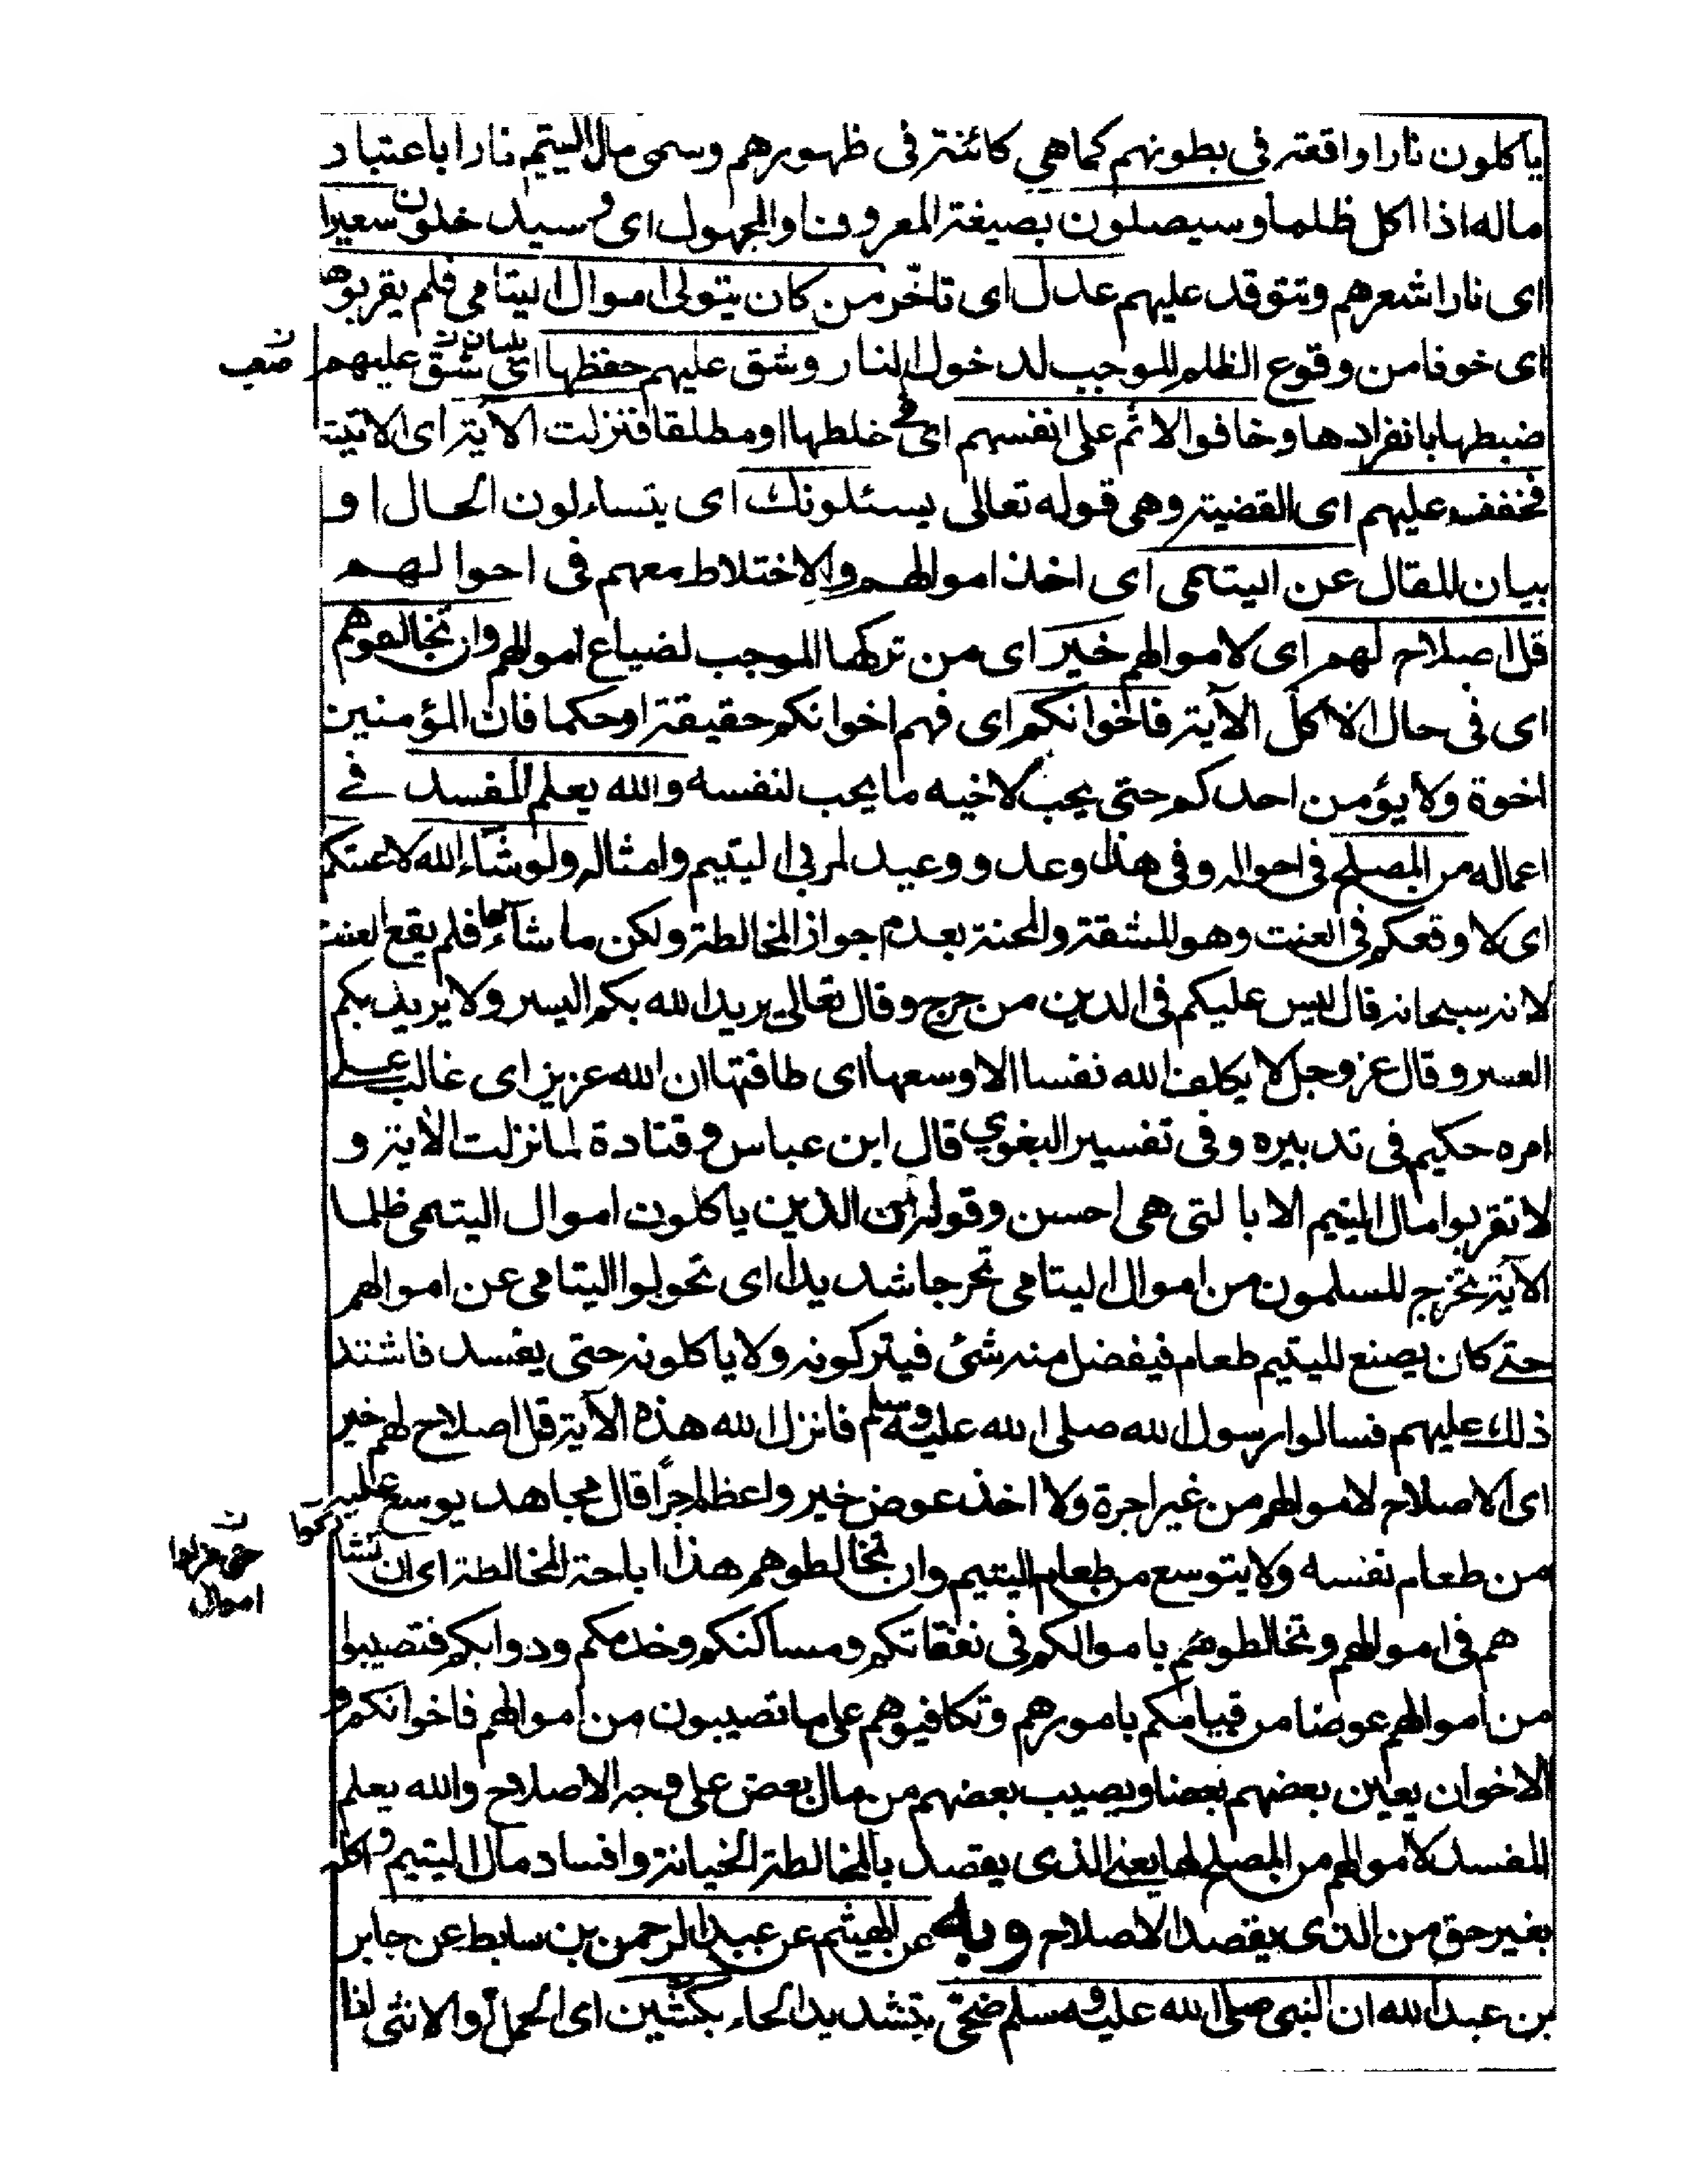 ياكلون نارا واقعة في بطونهم كما هي كائنة في ظهورهم وسمى مال اليتيم نارا باعتبار
ماله اذا اكل ظلما وسيصلون بصيغة المعروف والمجهول اى وسيدخلون سعيرا
اى نارا تشعرهم وتتوقد عليهم عدل اى تأخر من كان يتولى اموال اليتامى فلم يقربوها
اى خوفا من وقوع الظلم الموجب لدخول النار وشق عليهم حفظها اى شق عليهم
ضبطها بانفرادها وخافوا الاثم على انفسهم اى في خلطها او مطلقا فنزلت الآية اى الاتية
فخفف عليهم اى القضية وهى قوله تعالى يسئلونك اى يتساءلون الحال او
بيان المقال عن اليتمى اى اخذ اموالهم والاختلاط معهم فى احوالهم
قل اصلاح لهم اى لاموالهم خير اى من تركها الموجب لضياع اموالهم وان تخالطوهم
اى فى حال الاكل الآية فاخوانكم اى فهم اخوانكم حقيقة او حكما فان المؤمنين
اخوة ولا يؤمن احدكم حتى يحب لاخيه ما يحب لنفسه والله يعلم المفسد في
اعماله من المصلح فى احواله وفى هذا وعد ووعيد لمربى اليتيم وامثاله ولو شاء الله لاعنتكم
اى لاوقعكم فى العنت وهو المشقة والمحنة بعدم جواز المخالطة ولكن ما شاءها فلم يقع العنت
لانه سبحانه قال ليس عليكم فى الدين من حرج وقال تعالى يريد الله بكم اليسر ولا يريد بكم
العسر وقال عز وجل لا يكلف الله نفسا الا وسعها اى طاقتها ان الله عزيز اى غالب على
امره حكيم فى تدبيره وفى تفسير البغوي قال ابن عباس وقتادة لما نزلت الآية و
لا تقربوا مال اليتيم الا بالتى هى احسن وقوله ان الذين ياكلون اموال اليتمى ظلما
الآية تحرج المسلمون من اموال اليتامى تحرجا شديدا اى تحولوا اليتامى عن اموالهم
حتى كان يصنع لليتيم طعام فيفضل منه شئ فيتركونه ولا ياكلونه حتى يفسد فاشتد
ذلك عليهم فسالوا رسول الله صلى الله عليه وسلم فانزل الله هذه الآية قل اصلاح لهم خير
اى الاصلاح لاموالهم من غير اجرة ولا اخذ عوض خير واعظم اجرا قال مجاهد يوسع عليه
من طعام نفسه ولا يتوسع من طعام اليتيم وان تخالطوهم هذا اباحة المخالطة اى ان تشاركوا
هم فى اموالهم وتخالطوهم باموالكم فى نفقاتكم ومساكنكم وخدمكم ودوابكم فتصيبوا
من اموالهم عوضا من قيامكم بامورهم وتكافيوهم على ما تصيبون من اموالهم فاخوانكم و
الاخوان يعين بعضهم بعضا ويصيب بعضهم من مال بعض على وجه الاصلاح والله يعلم
المفسد لاموالهم من المصلح لها يعنى الذى يقصد بالمخالطة الخيانة وافساد مال اليتيم واكله
بغير حق من الذى يقصد الاصلاح وبه عن الهيثم عن عبد الرحمن بن سابط عن جابر
بن عبد الله ان النبى صلى الله عليه وسلم ضحّى بتشديد الحاء بكبشين اى الحمل والانثى لفا
ن
صعب
ن
حتى عزلوا
اموال